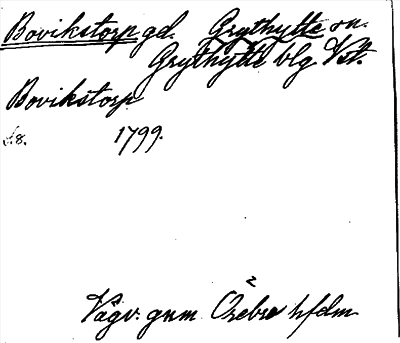 Bovikstorp gd. Grythytte sn.
Grythytte blg Vst.
Bovikstorp
1799.
2
Vägv. gnm Örebro hfdm